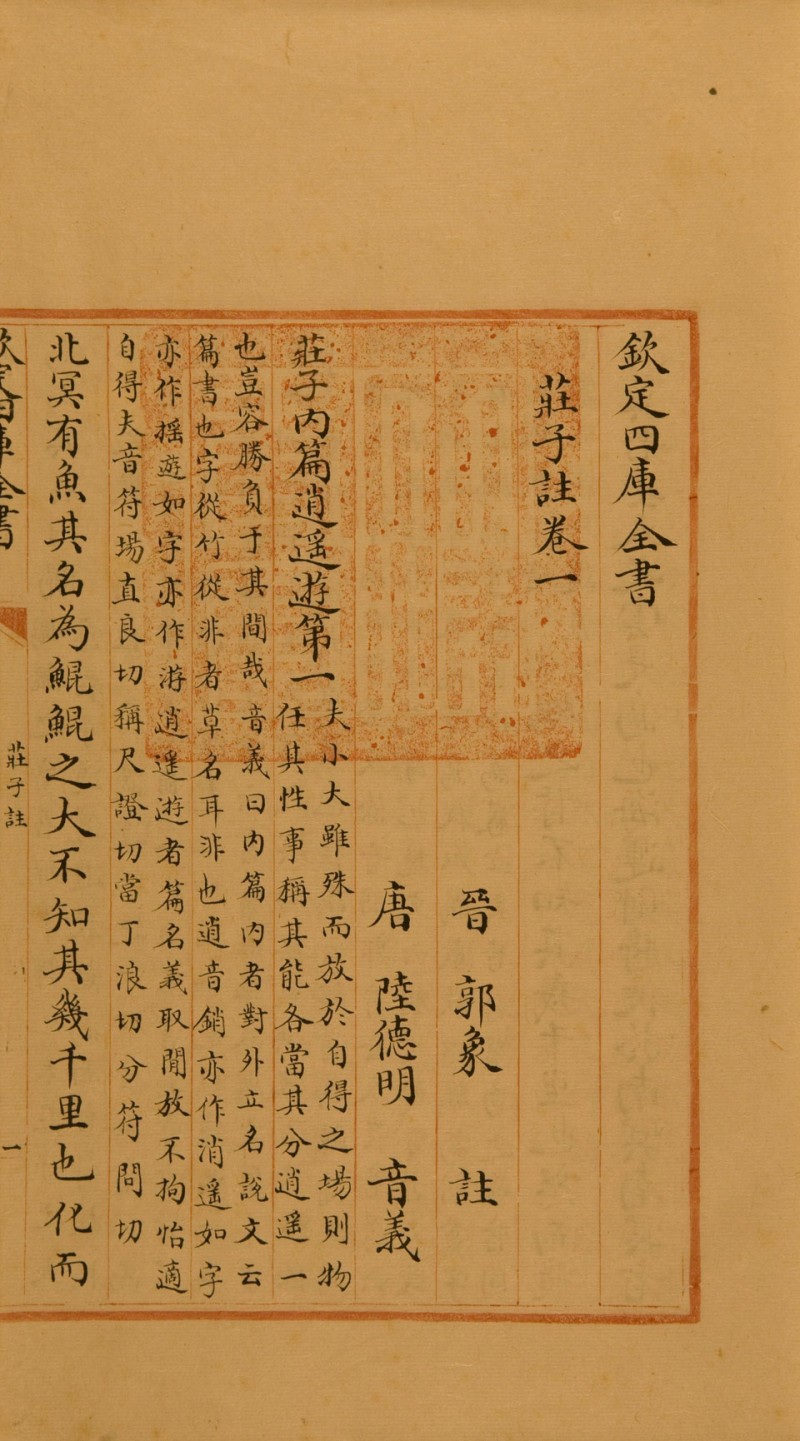 欽定四庫全書
莊子註卷一
晉 郭象 註
唐 陸德明 音義
莊子内篇逍遥遊第一
夫小大雖殊而放於自得之場則物
任其性事稱其能各當其分逍遥一
也豈容勝負于其間哉音義曰内篇内者對外立名説文云
篇書也字從竹從㳺者草名耳非也逍音銷亦作消遥如字
亦作揺遊如字亦作游逍遥遊者篇名義取閒放不拘怡適
自得夫音符場直良切稱尺證切當丁浪切分符問切
北冥有魚其名為鯤鯤之大不知其幾千里也化而
欽定四庫全書
莊子註
一